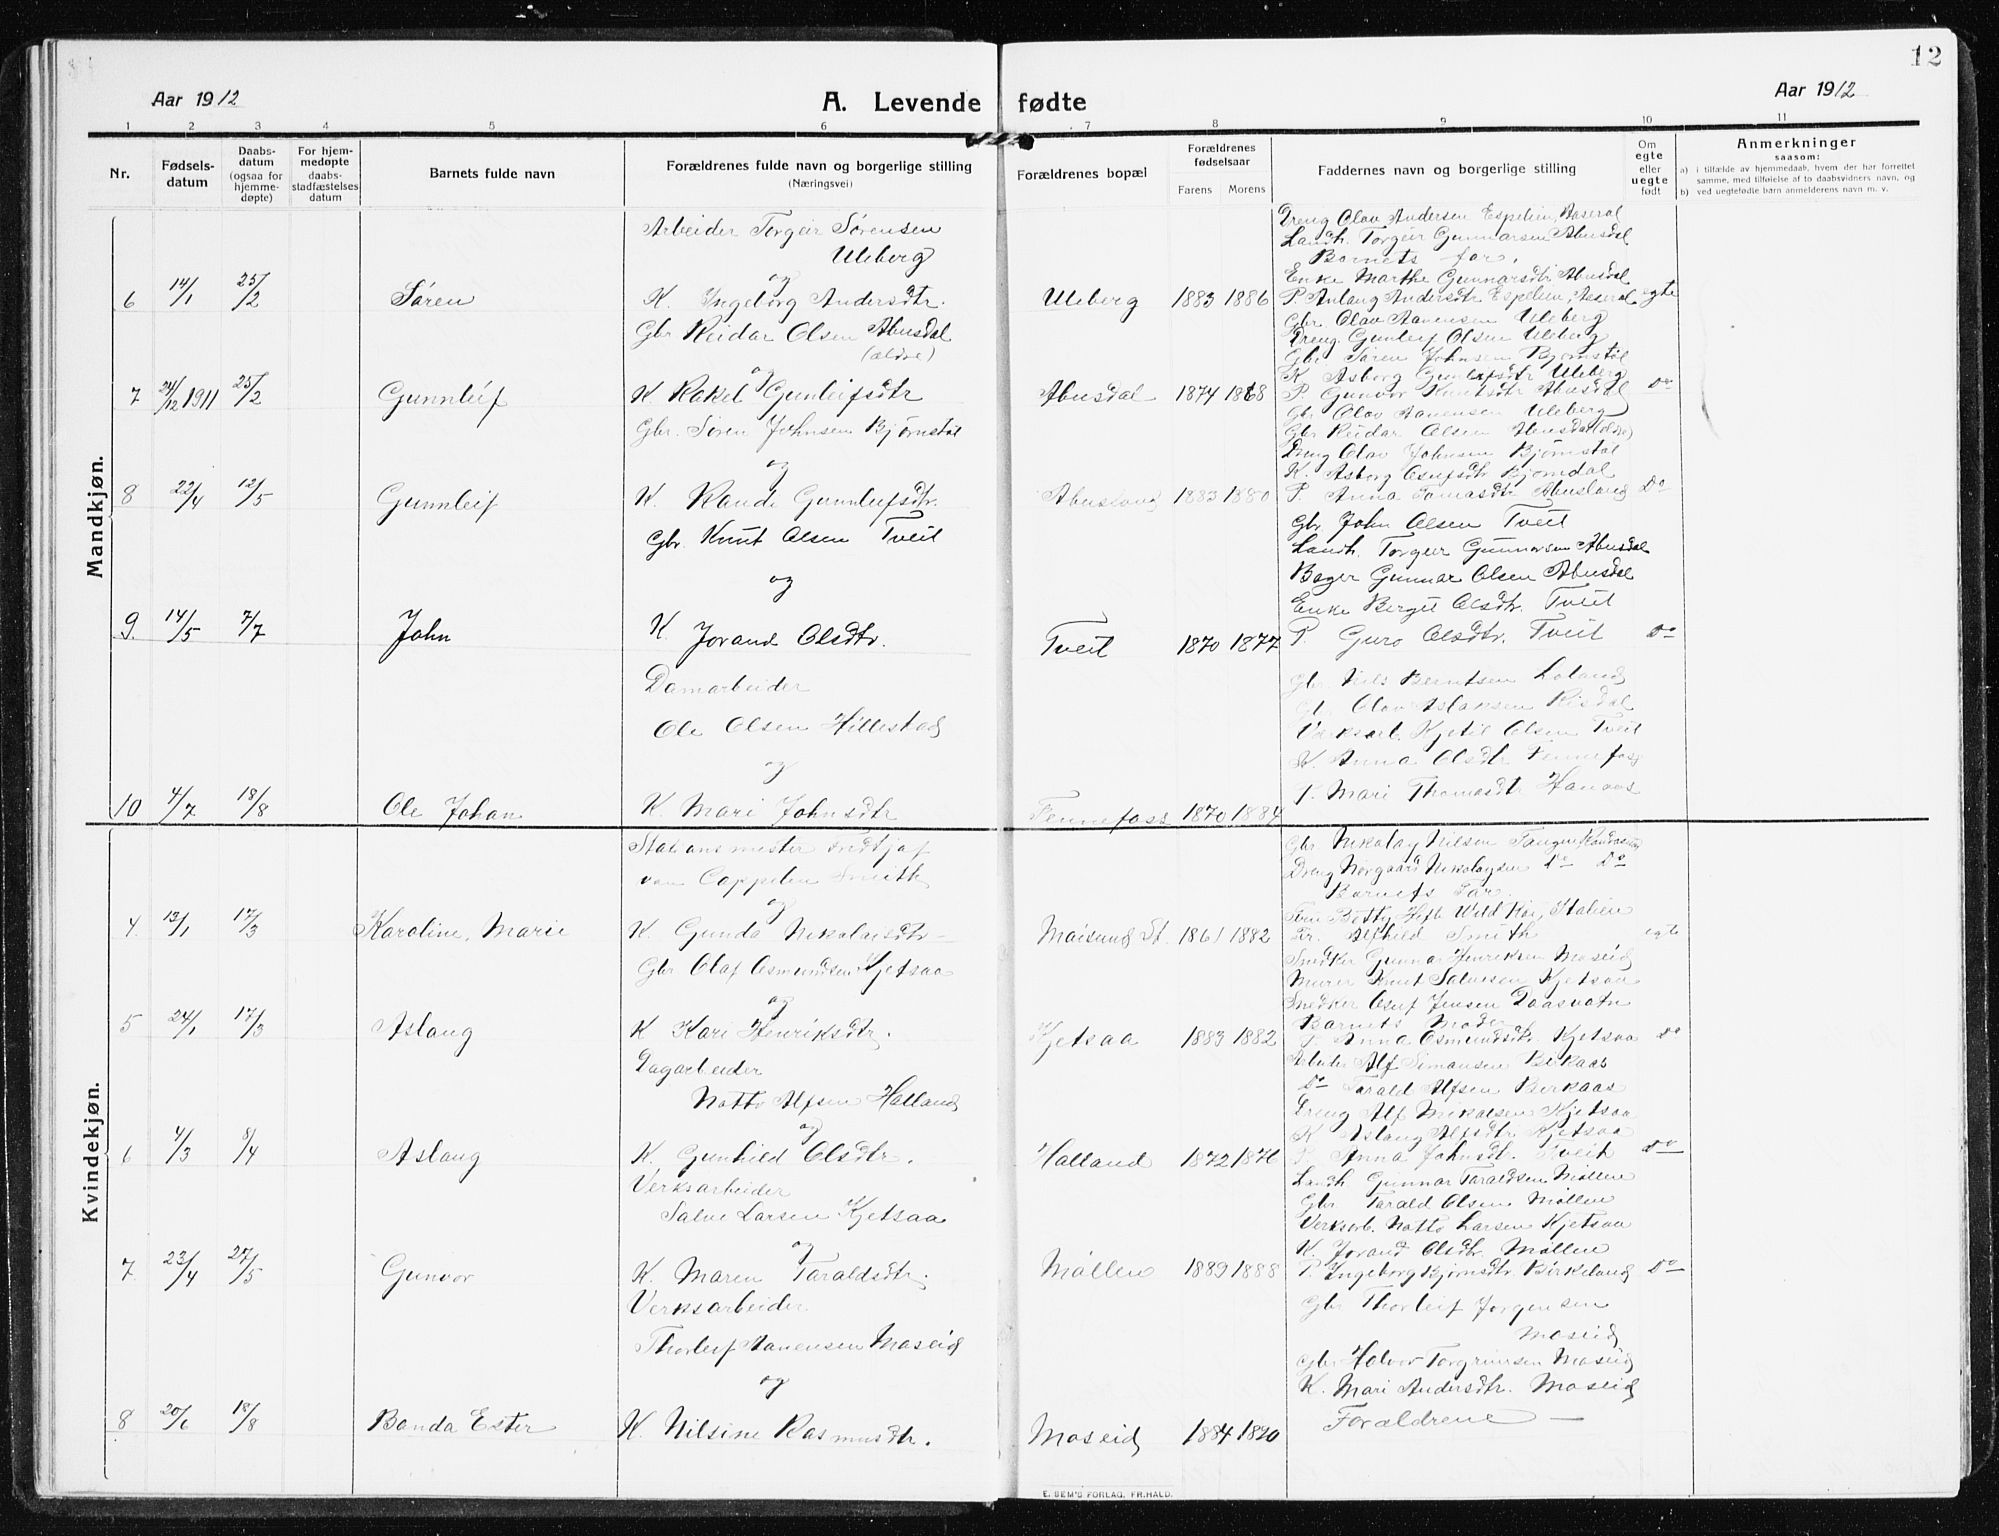 12
Aar 1912
A. Levende fødte
Aar 1912
1 2 3 4 5 6 7 8 9 10 11
Nr.
Fødsels-
datum
Daabs-
datum
(ogsaa for
hjemme-
døpte)
For hjem-
medøpte
daabs-
stadfæstelses
datum
Barnets fulde navn
Forældrenes fulde navn og borgerlige stilling
(Næringsvei)
Forældrenes bopæl
Forældrenes
fødselsaar
Farens Morens
Faddernes navn og borgerlige stilling
Om
egte
eller
uegte
født
Anmerkninger
saasom:
a) i tilfælde av hjemmedaab, hvem der har forrettet
samme, med tilføielse af to daabsvidners navn, og
b) ved uegtefødte barn anmelderens navn m. v.
Mandkjøn.
6 14/1 25/2 Søren
Arbeider Torgeir Sørensen
Uleberg
og
K. Ingeborg Andersdtr.
Uleberg 1883 1886
Dreng Olav Andersen Espelien, Aaseral
Landh. Torgeir Gunnarsen Abusdal
Barnets far.
Enke Marthe Gunnarsdtr Abusdal
P. Anlaug Andersdtr Espelien, Aaseral
egte
7 24/12 1911 25/2 Gunnleif
Gbr Reidar Olsen Abusdal
(ældre)
og
K Rakel Gunleifsdtr
Abusdal 1874 1868
Gbr. Olav Aanensen Uleberg
Dreng. Gunleif Olsen Uleberg
Gbr Søren Johnsen Bjørnstøl
K. Asborg Gunleifsdtr Uleberg
P. Gunvor Knutsdtr Abusdal
Do
8 22/4 12/5 Gunnleif
Gbr. Søren Johnsen Bjørnstøl
og
K. Rande Gunnleifsdtr.
Abusland 1883 1880
Gbr Olav Aanensen Uleberg
Gbr Reidar Olsen Abusdal (ældre)
Dreng Olav Johnsen Bjørnstøl
K. Asborg Osufsdtr Bjorndal
P. Anna Tomasdtr Abusland
Do
9 14/5 7/7 John
Gbr. Knut Olsen Tveit
og
K Jorand Olsdtr.
Tveit 1870 1877
Gbr. John Olsen Tveit
Landh. Torgeir Gunnarsen Abusdal
Bager Gunnar Olsen Abusdal
Enke Birgit Olsdtr. Tveit
P. Guro Olsdtr. Tveit
Do
10 4/7 18/8 Ole Johan
Damarbeider
Ole Olsen Hillestad
og
K. Mari Johnsdtr
Fennefoss 1870 1884
Gbr Nils Berntsen Loland
Olav Aslaksen Risdal
Verksarb. Kjetil Olsen Tveit
K Anna Olsdtr Fennefoss
P. Mari Thomasdtr Hanaas
Kvindekjøn.
4 13/1 17/3 Karoline, Marie
Stationsmester Fredtjof
von Cappelen Smith
og
K. Gunda Nikolaisdtr
Moisund St. 1861 1882
Gbr. Nikolay Nilsen Tangen
Dreng Norgaard Nikolaysen Do Do
Barnets Far.
Fr. Alfhild Smith
egte
5 24/1 17/3 Aslaug
Gbr Olaf Osmundsen Kjetsaa
og
K Kari Henriksdtr.
Kjetsaa 1883 1882
Snedker Gunnar Henriksen Moseid
Murer Knut Salvesen Kjetsaa
Snedker Osuf Jensen Daasvatn
Barnets Moder
P. Anna Osmundsdtr Kjetsaa
Do
6 4/3 8/4 Aslaug
Dagarbeider
Notto Alfsen Holland
og
K. Gunhild Olsdtr.
Holland 1872 1876
Arbeider Alf Simonsen Birkaas
Do Tarald Alfsen Berkaas
Dreng Alf Mikalsen Kjetsaa
K Aslaug Alfsdtr Kjetsaa
P. Anna Johnsdt. Tveit
Do
7 23/4 27/5 Gunvor
Verksarbeider
Salve Larsen Kjetsaa
og
K. Maren Taraldsdtr.
Møllen 1889 1888
Landh Gunnar Taraldsen Møllen
Gbr Tarald Olsen Møllen
Verksarb. Notto Larsen Kjetsaa
K. Jorand Olsdtr. Møllen
P. Ingeborg Bjørnsdtr. Birkeland
Do
8 20/6 18/8 Banda Ester
Verksarbeider
Thorleif Aanensen Moseid
og
K. Nilsine Rasmusdtr.
Moseid 1884 1890
Gbr Thorleif Jorgensen
Moseid
Gbr Halvor Torgrimsen Moseid
K. Mari Andersdtr. Moseid
Forældrene
E. SEM'S FORLAG, FR.HALD.